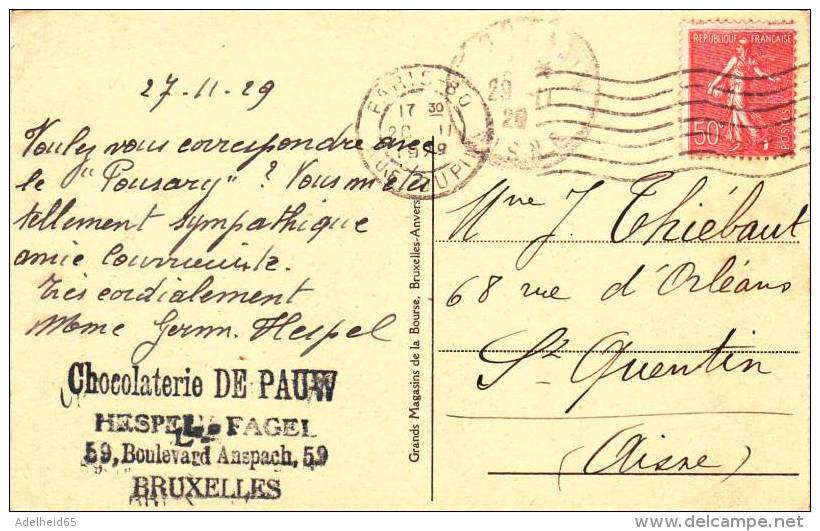 27-11-29
Voulez vous correspondre avec
le " " ? Vous m'êtes
tellement sympathique
amie Courrieriste.
Très cordialement
Mme Germ. Hespel
Chocolaterie DE PAUW
HESPEL - FAGEL
59, Boulevard Anspach, 59
BRUXELLES
Grands Magasins de la Bourse, Bruxelles-Anvers
PARIS-80
17 30
REPUBLIQUE FRANÇAISE
50c
Mme J. Thiébaut
68 rue d'Orléans
St Quentin
(Aisne)
Adelheid65
www.delcampe.net